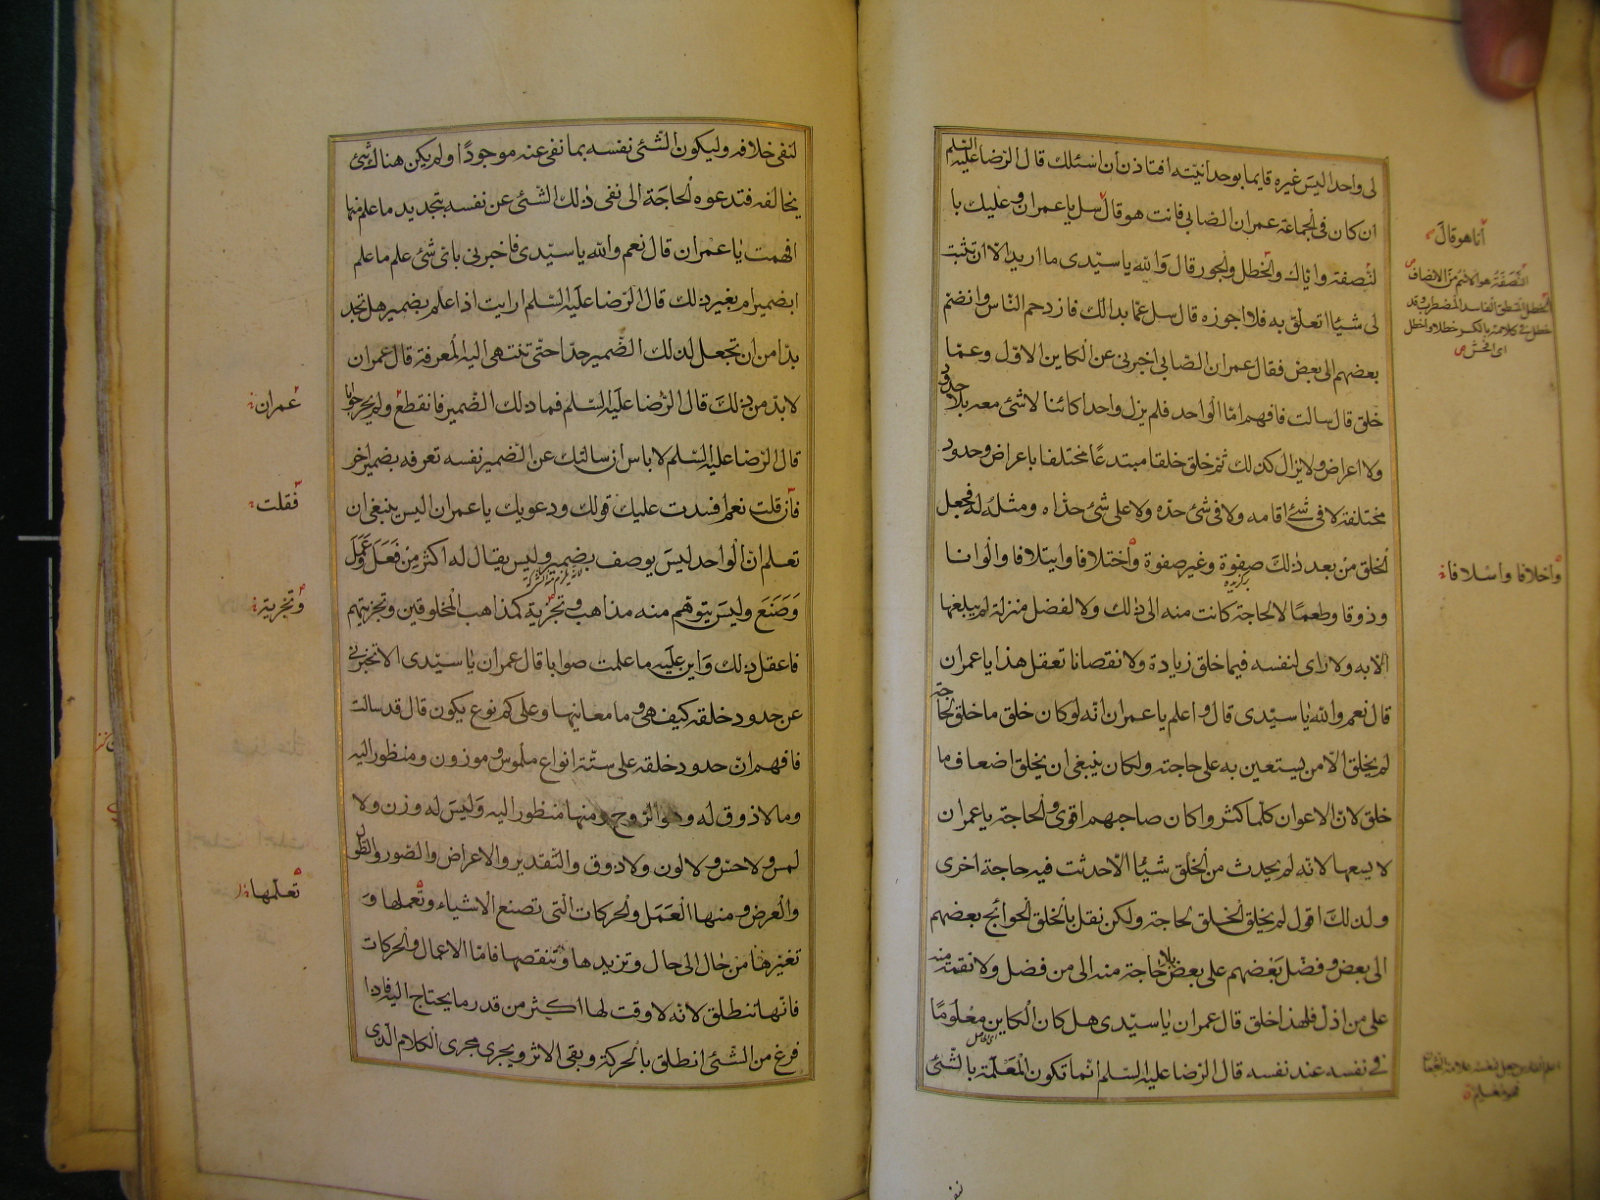 لى واحدا ليس غيره قايما بوحدانيّته افتاذن ان اسئلك قال الرّضا عليه السّلم
ان كان فى الجماعة عمران الصّابى فانت هو قال سل يا عمران وعليك با
لنّصفة وايّاك والخطل والجور قال والله يا سيّدى ما اريد الّا ان تثبت
لى شيئا اتعلّق به فلا اجوزه قال سل عمّا بدالك فازدحم النّاس وانضمّ
بعضهم الى بعض فقال عمران الصّابى اخبرنى عن الكاين الاوّل وعمّا
خلق قال سالت فافهم امّا الواحد فلم يزل واحدا كائنا لا شئ معه بلا حدود
ولا اعراض ولا يزال كذلك ثم خلق خلقا مبتدعًا مختلفا باعراض وحدود
مختلفة لا فى شئ اقامه ولا فى شئ حدّه ولا على شئ حذاه ومثله له فجعل
الخلق من بعد ذلك صفوة وغير صفوة واختلافا وايتلافا والوانا
وذوقا وطعمًا لا لحاجة كانت منه الى ذلك ولا لفضل منزلة لم يبلغها
الّا به ولا راى لنفسه فيما خلق زيادة ولا نقصانا تعقل هذا يا عمران
قال نعم والله يا سيّدى قال واعلم يا عمران انّه لو كان خلق ما خلق لحاجة
لم يخلق الّا من يستعين به على حاجته ولكان ينبغى ان يخلق اضعاف ما
خلق لانّ الاعوان كلّما كثروا كان صاحبهم اقوى والحاجة يا عمران
لا يسعها لانّه لم يحدث من الخلق شيئا الّا حدثت فيه حاجة اخرى
ولذلك اقول لم يخلق الخلق لحاجة ولكن نقل بالخلق الحوائج بعضهم
الى بعض وفضّل بعضهم على بعض بلا حاجة منه الى من فضل ولا نقمة منه
على من اذلّ فلهذا خلق قال عمران يا سيّدى هل كان الكاين معلومًا
فى نفسه عند نفسه قال الرّضا عليه السّلم انّما تكون المعلمة بالشّئ
انا هو قال
النّصفة هو الاسم من الانصاف
الخطل المنطق الفاسد المضطرب وقد
خطل فى كلامه بالكسر خطلا واخطل
اى افحش
واختلافا وائتلافا
لنفى خلافه وليكون الشّئ نفسه بما نفى عنه موجودًا ولم يكن هناك شئ
يخالفه فتدعوه الحاجة الى نفى ذلك الشّئ عن نفسه بتجديد ما علم منها
افهمت يا عمران قال نعم والله يا سيّدى فاخبرنى باىّ شئ علم ما علم
ابضمير ام بغير ذلك قال الرّضا عليه السّلم ارايت اذا علم بضمير هل تجد
بدّا من ان تجعل لذلك الضّمير حدّا حتّى تنتهى اليه المعرفة قال عمران
لا بدّ من ذلك قال الرّضا عليه السّلم فما ذلك الضّمير فانقطع ولم يحر جوابا
قال الرّضا عليه السّلم لا باس ان سالتك عن الضّمير نفسه تعرفه بضمير اخر
فان قلت نعم افسدت عليك قولك ودعويك يا عمران اليس ينبغى ان
تعلم انّ الواحد ليس يوصف بضمير وليس يقال له اكثر من فعل وعمل
وصنع وليس يتوهّم منه مذاهب وتجزية كمذاهب المخلوقين وتجزيتهم
فاعقل ذلك وابن عليه ما علمت صوابا قال عمران يا سيّدى الا تخبرنى
عن حدود خلقه كيف هى وما معانيها وعلى كم نوع يكون قال قد سالت
فافهم انّ حدود خلقه على ستّة انواع ملموس وموزون ومنظور اليه
وما لا ذوق له وهو الرّوح ومنها منظور اليه وليس له وزن ولا
لمس ولا حسّ ولا لون ولا ذوق والتّقدير والاعراض والصّور والطّول
والعرض ومنها العمل والحركات الّتى تصنع الاشياء وتعملها و
تغيّرها من حال الى حال وتزيدها وتنقصها فامّا الاعمال والحركات
فانّها تنطلق لانّه لا وقت لها اكثر من قدر ما يحتاج اليه فاذا
فرغ من الشّئ انطلق بالحركة وبقى الاثر ويجرى مجرى الكلام الّذى
عمران
فقلت
وتجزيته
تعلّمها